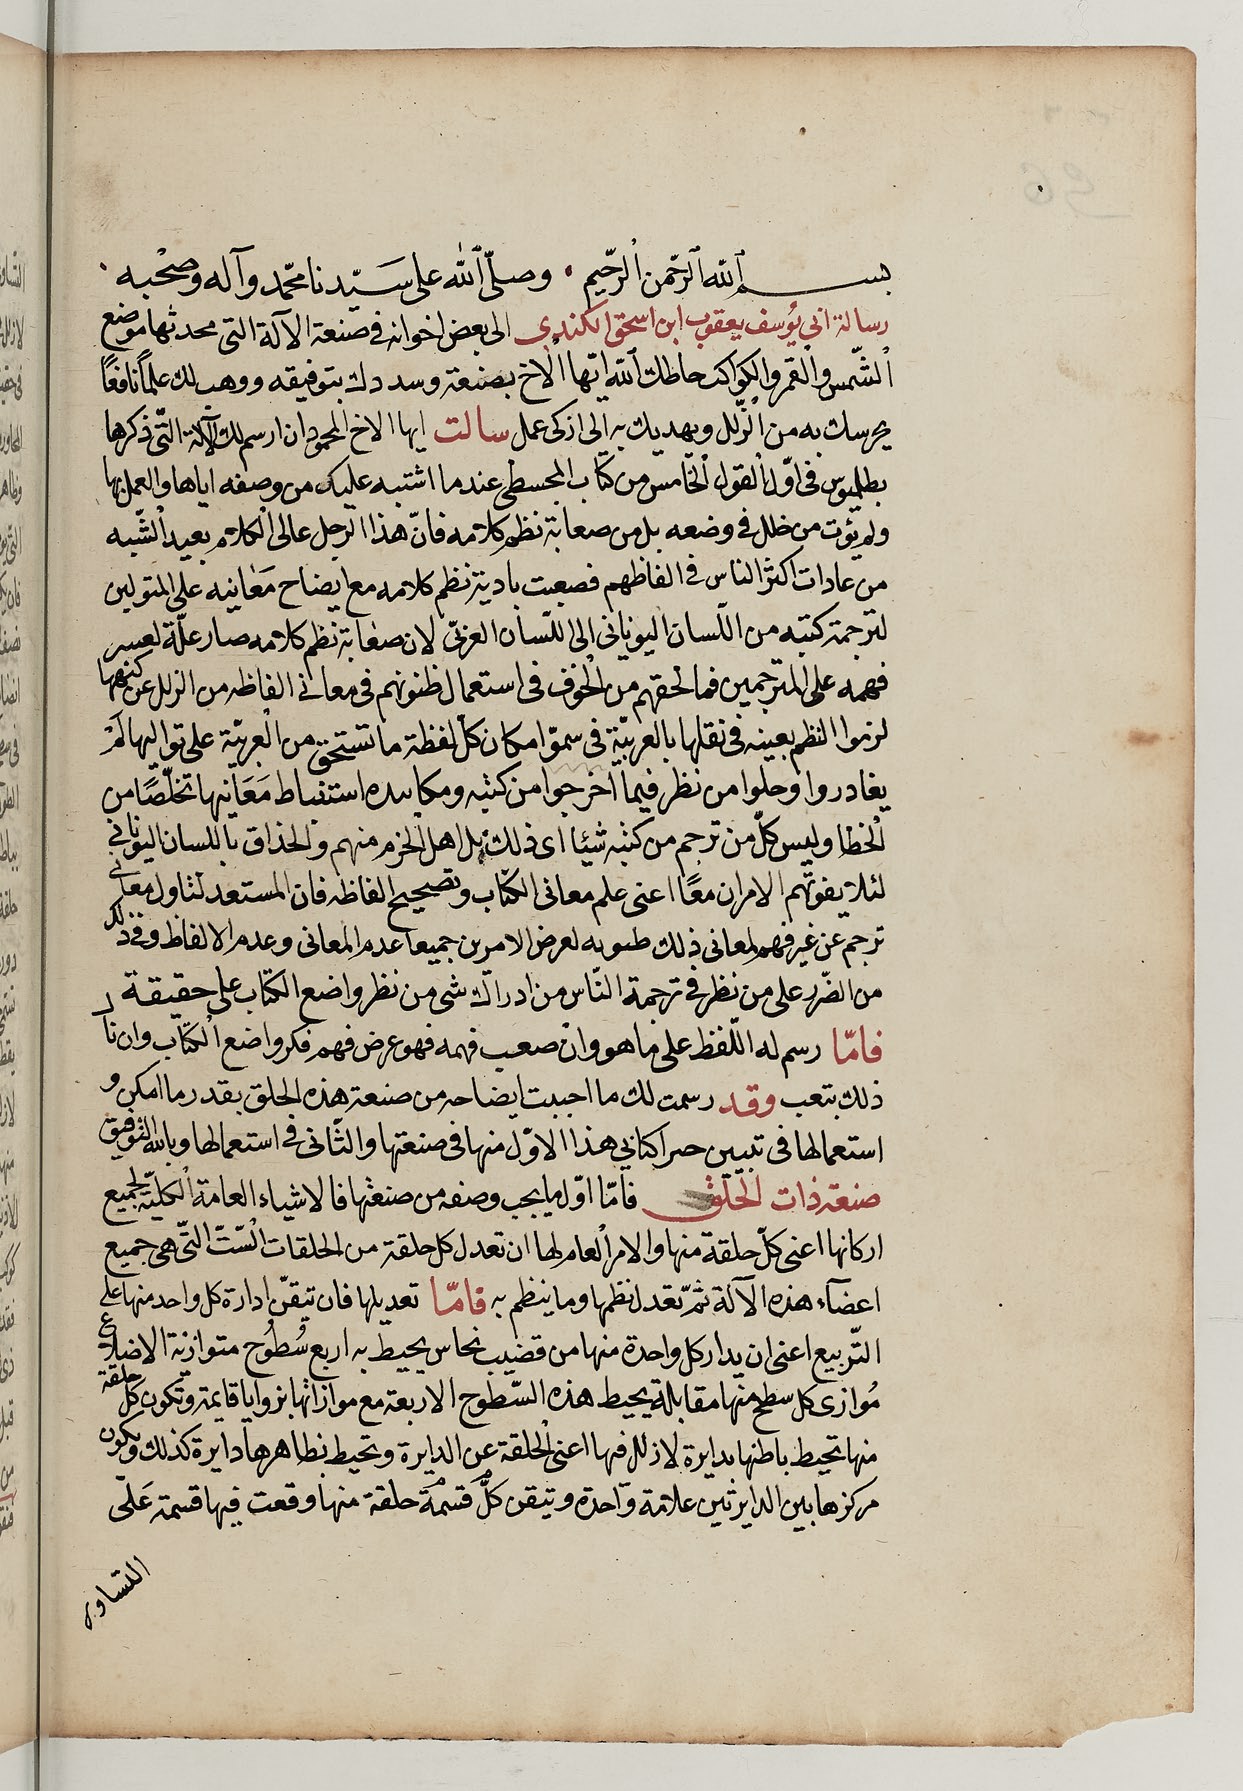 بسم الله الرحمن الرحيم وصلى الله على سيدنا محمد وآله وصحبه
رسالة ابى يوسف يعقوب ابن اسحق الكندى الى بعض اخوانه فى صنعة الآلة التى محدثها موضع
الشمس والقمر والكواكب حاطك الله ايها الاخ بصنعه وسددك بتوفيقه ووهب لك علما نافعا
يحرسك به من الزلل ويهديك به الى ازكى عمل سالت ايها الاخ المحمود ان ارسم لك الآلة التى ذكرها
بطلميوس فى اول القول الخامس من كتاب المجسطى عندما اشتبه عليك من وصفه اياها والعمل بها
ولم يؤت من خلل فى وضعه بل من صعابة نظم كلامه فان هذا الرجل عالى الكلام بعيد الشبه
من عادات اكثر الناس فى الفاظهم فصعبت بادية نظم كلامه مع ايضاح معانيه على المتولين
لترجمة كتبه من اللسان اليونانى الى اللسان العربى لان صعابة نظم كلامه صار علة لعسر
فهمه على المترجمين فما لحقهم من الخوف فى استعمال ظنونهم فى معانى الفاظه من الزلل عن كنهها
لزموا النظم بعينه فى نقلها بالعربية فى سمو امكان كل لفظة ما تستحق من العربية على تواليها لم
يغادروا وحلوا من نظر فيما اخرجوا من كتبه ومكابده استنباط معانيها تخلصا من
الخطا وليس كل من ترجم من كتبه شيئا اى ذلك بل اهل الحزم منهم والحذاق باللسان اليونانى
لئلا يفوتهم الامران معا اعنى علم معانى الكتاب وتصحيح الفاظه فان المستعد لتناول معانى
ترجم عن غير فهم لمعانى ذلك لعرض الامرين جميعا عدم المعانى وعدم الالفاظ وفى ذلك
من الضرر على من نظر فى ترجمة الناس من ادراك شى من نظر واضع الكتاب على حقيقة
فاما رسم له اللفظ على ما هو وان صعب فهمه فهو عرض فهم فكر واضع الكتاب وان نال
ذلك بتعب وقد رسمت لك ما احببت ايضاحه من صنعة هذه الحلق بقدر ما امكن و
استعمالها فى تبيين كتابى هذا الاول منها فى صنعتها والثانى فى استعمالها وبالله التوفيق
صنعة ذات الحلق فاما اول ما يجب وصفه من صنعتها فالاشياء العامة الكلية لجميع
اركانها اعنى كل حلقة منها والامر العام لها ان تعدل كل حلقة من الحلقات الست التى هى جميع
اعضاء هذه الآلة ثم تعدل نظمها وما ينظم به فاما تعديلها فان تيقن ادارة كل واحد منها على
التربيع اعنى ان يدار كل واحدة منها من قضيب نحاس يحيط به اربع سطوح متوازية الاضلاع
موازى كل سطح منها مقابلة يحيط هذه السطوح الاربعة مع موازاتها بزوايا قايمة وتكون كل حلقة
منها تحيط باطنها بدايرة لا زلل فيها اعنى الحلقة عن الدايرة وتحيط بظاهرها دايرة كذلك ويكون
مركزها بين الدايرتين علامة واحدة وتيقن كل قسمة حلقة منها وقعت فيها قسمة على
التساوى